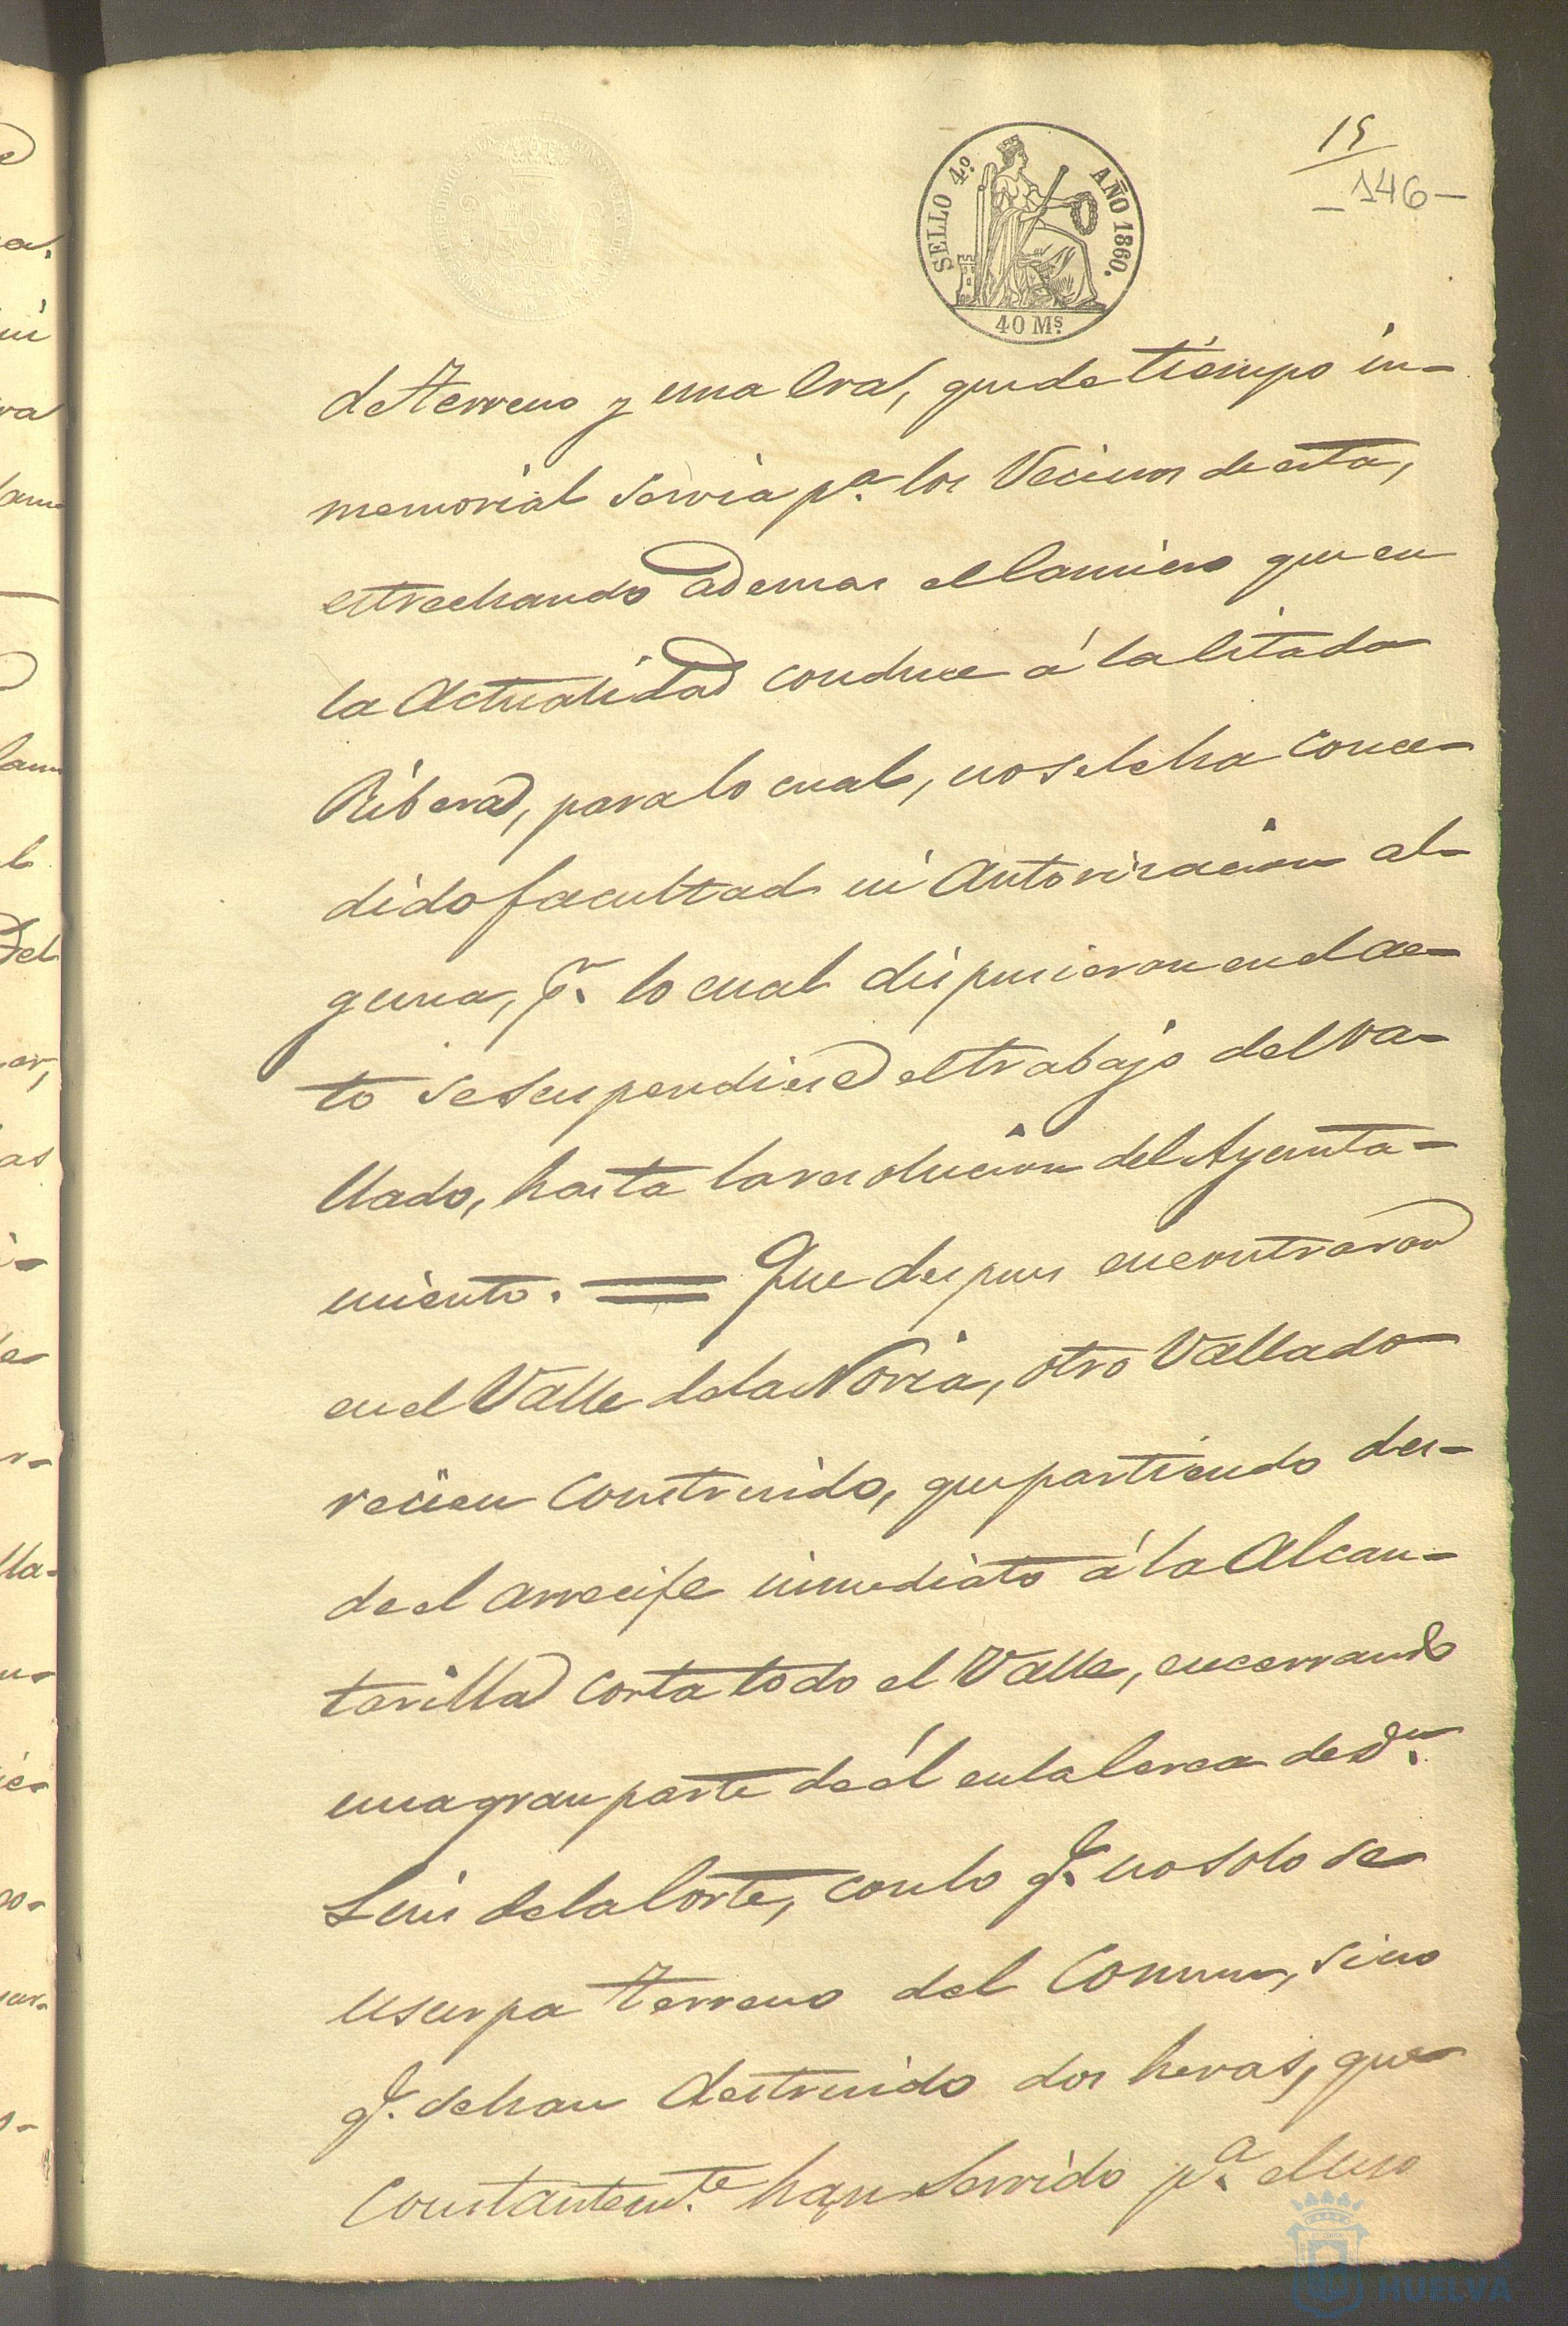 15
-146-
SELLO 4º AÑO 1860.
40 Ms.
de terreno y una Era, que de tiempo in-
memorial servia pª. los Vecinos de esta,
estrechando ademas el Camino que en
la Actualidad conduce á la Citada
Ribera, para lo cual, no se le ha conce-
dido facultad ni Autorizacion al-
guna, pr. lo cual dispusieron en el ac-
to se suspendiera el trabajo del va-
llado, hasta la resolucion del Ayunta-
miento. = Que despues encontraron
en el Valle de la Noria, otro Vallado
recien Construido, que partiendo des-
de el arrecife inmediato á la Alcan-
tarilla corta todo el Valle, encerrando
una gran parte de él en la Cerca de Dn.
Luis de la Corte, con lo q. no solo se
usurpa terreno del Comun, sino
q. se han destruido dos heras, que
Constantemte. han servido pª. el uso
HUELVA